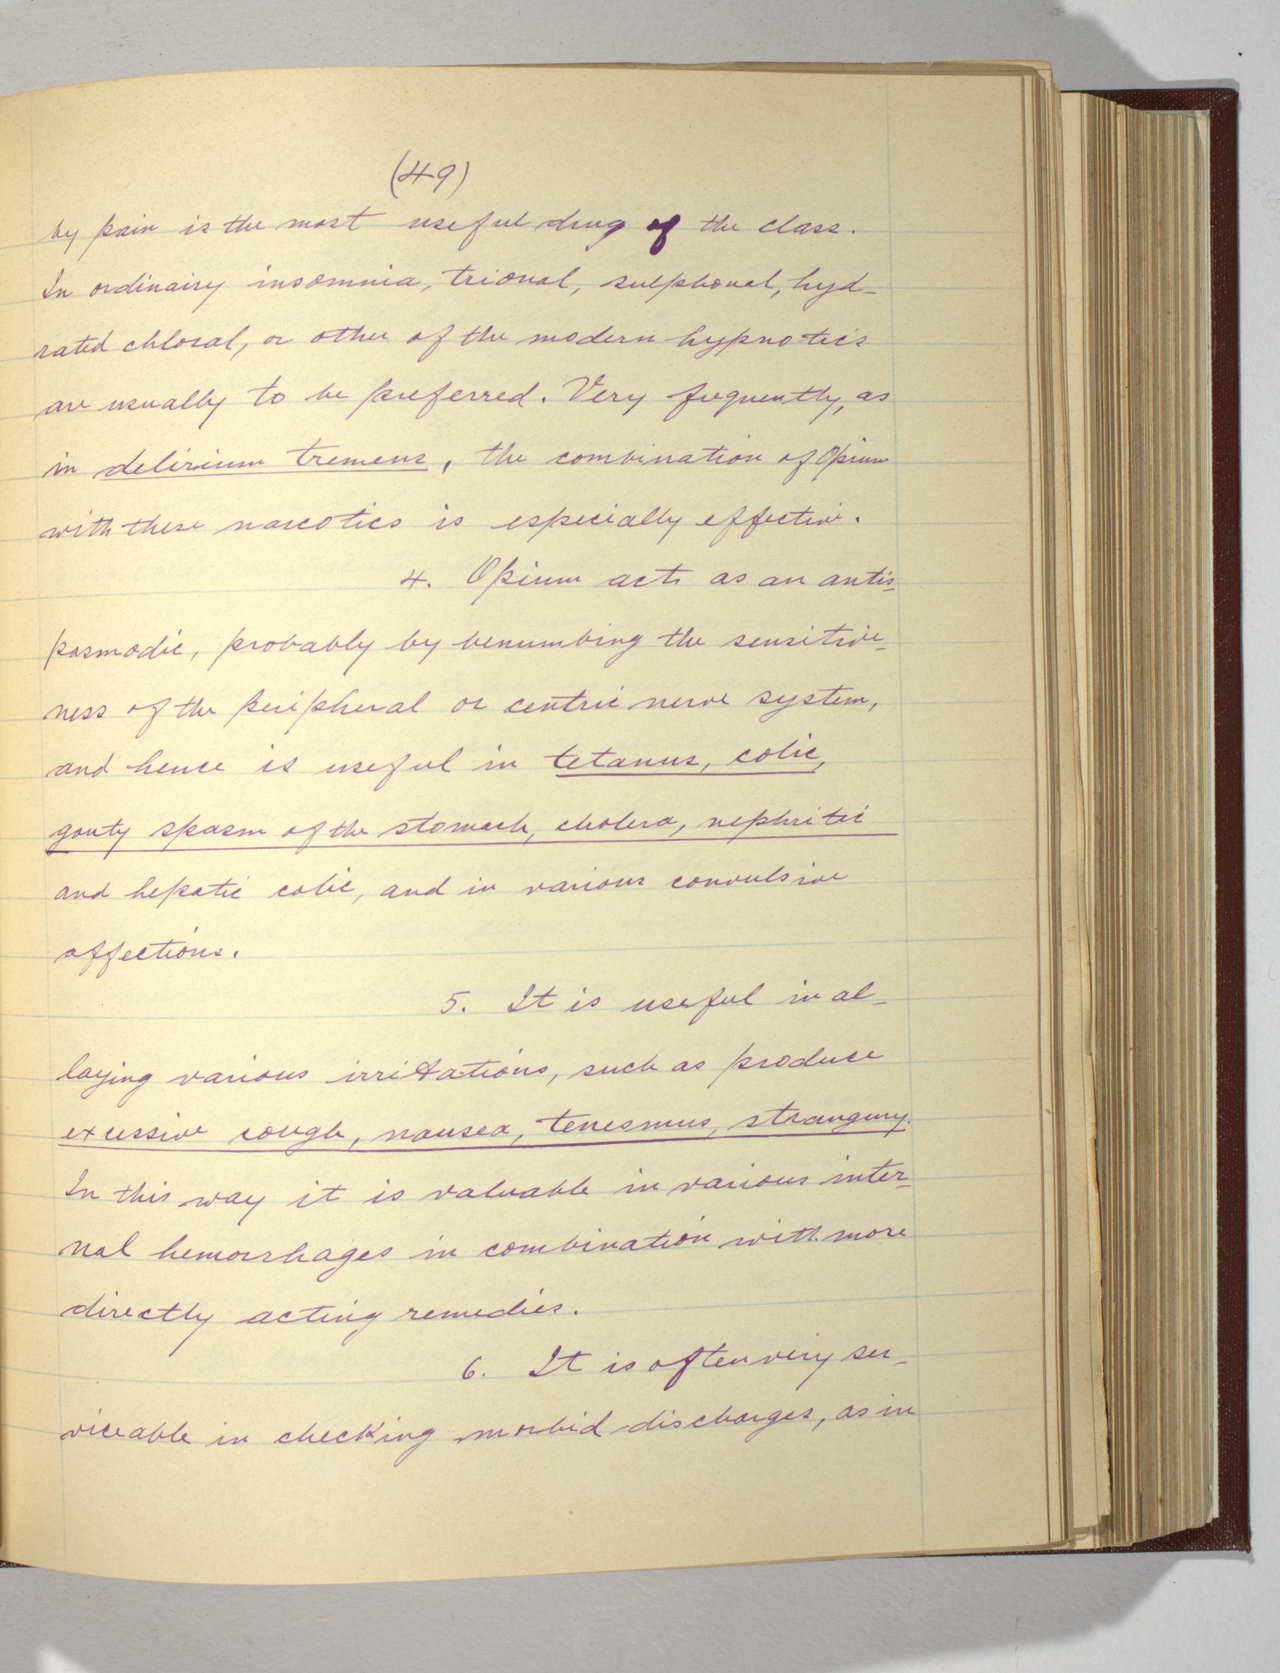 (49)
by pain is the most useful drug of the class.
In ordinairy insomnia, trional, sulphonal, hyd-
rated chloral, or other of the modern hypnotics
are usually to be preferred. Very frequently, as
in delirium tremens, the combination of Opium
with these narcotics is especially effective.
4. Opium acts as an antis-
pasmodic, probably by benumbing the sensitive-
ness of the peripheral or centric nerve system,
and hence is useful in tetanus, colic,
gouty spasm of the stomach, cholera, nephritic
and hepatic colic, and in various convulsive
affections.
5. It is useful in al-
laying various irritations, such as produce
excessive cough, nausea, tenesmus, strangury.
In this way it is valuable in various inter-
nal hemorrhages in combination with more
directly acting remedies.
6. It is often very ser-
viceable in checking morbid discharges, as in